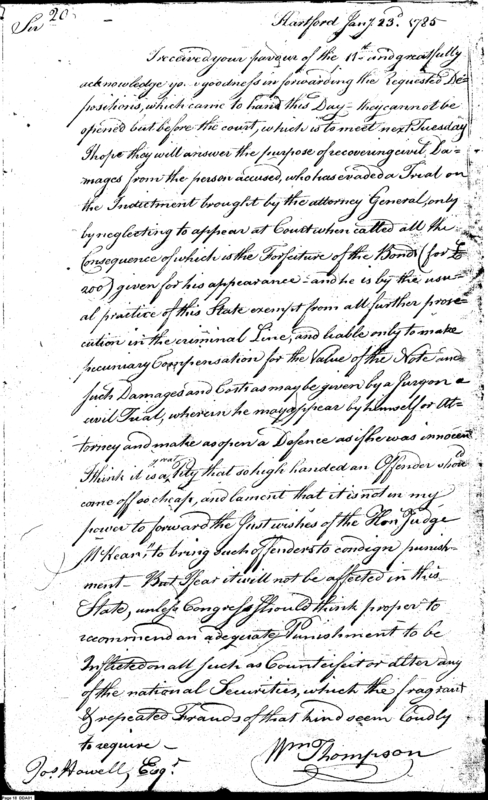 20
Hartford Jany. 23d. 1785
Sir
I received your favour of the 11th. and greatfully
acknowledge yo. goodness in forwarding the Requested De-
positions, which came to hand this Day - they cannot be
opened but before the court, which is to meet next Tuesday
I hope they will answer the purpose of recovering civil Da-
mages from the person accused, who has evaded a Trial on
the Indictment brought by the attorney General, only
by neglecting to appear at Court when called all the
Consequence of which is the Forfeiture of the Bond (for £
200) given for his appearance - and he is by the usu-
al practice of this State exempt from all further prose-
cution in the criminal Line, and liable only to make
pecuniary Compensation for the Value of the Note and
such Damages and Costs as may be given by a Jury on a
civil Trial, wherein he may appear by himself or At-
torney and make as open a Defence as if he was innocent
I think it is a great Pity that so high handed an Offender shou'd
come off so cheap, and lament that it is not in my
power to forward the Just wishes of the Hon. Judge
McKean, to bring such offenders to condign punish-
ment - But I fear it will not be affected in this
State, unless Congress should think proper to
recommend an adequate Punishment to be
Inflicted on all such as Counterfeit or alter any
of the national Securities, which the fragrant
& repeated Frauds of that kind seem Loudly
to require -
Wm Thompson
Jos Howell, Esqr.
Page 16 DDA01